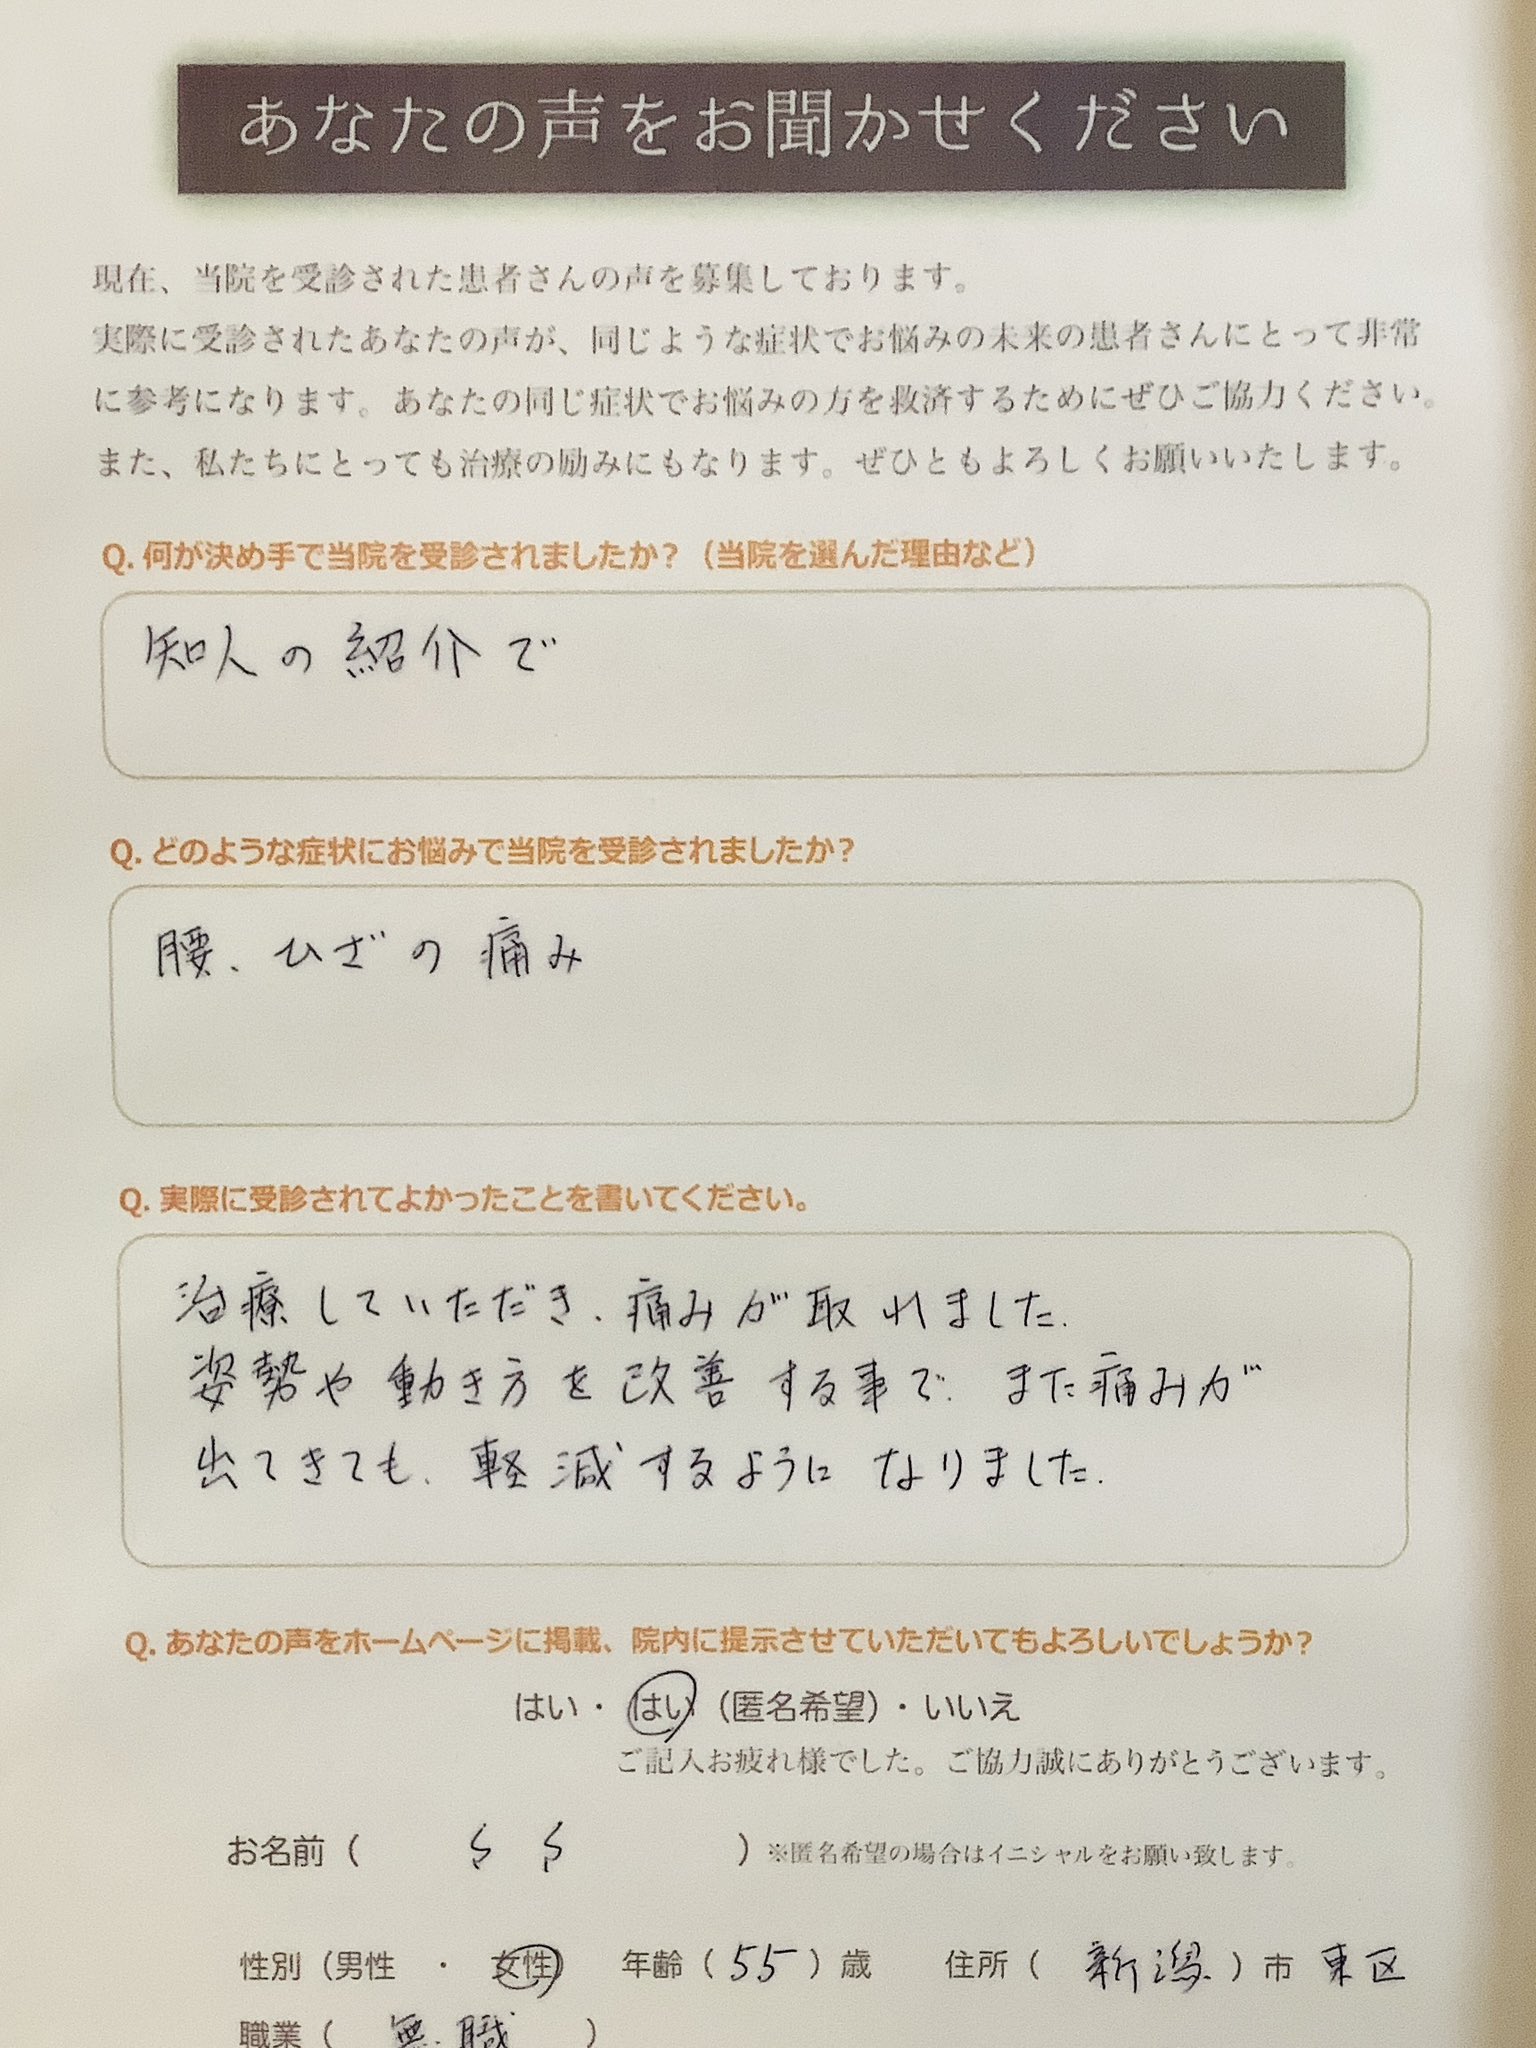 あなたの声をお聞かせください
現在、当院を受診された患者さんの声を募集しております。
実際に受診されたあなたの声が、同じような症状でお悩みの未来の患者さんにとって非常
に参考になります。あなたの同じ症状でお悩みの方を救済するためにぜひご協力ください。
また、私たちにとっても治療の励みにもなります。ぜひともよろしくお願いいたします。
Q. 何が決め手で当院を受診されましたか？（当院を選んだ理由など）
知人の紹介で
Q. どのような症状にお悩みで当院を受診されましたか？
腰、ひざの痛み
Q. 実際に受診されてよかったことを書いてください。
治療していただき、痛みが取れました。
姿勢や動き方を改善する事で、また痛みが
出てきても、軽減するようになりました。
Q. あなたの声をホームページに掲載、院内に提示させていただいてもよろしいでしょうか？
はい・はい（匿名希望）・いいえ
ご記入お疲れ様でした。ご協力誠にありがとうございます。
お名前（ S S ）※匿名希望の場合はイニシャルをお願い致します。
性別（男性 ・ 女性） 年齢（55）歳 住所（ 新潟 ）市 東区
職業（ 無職 ）